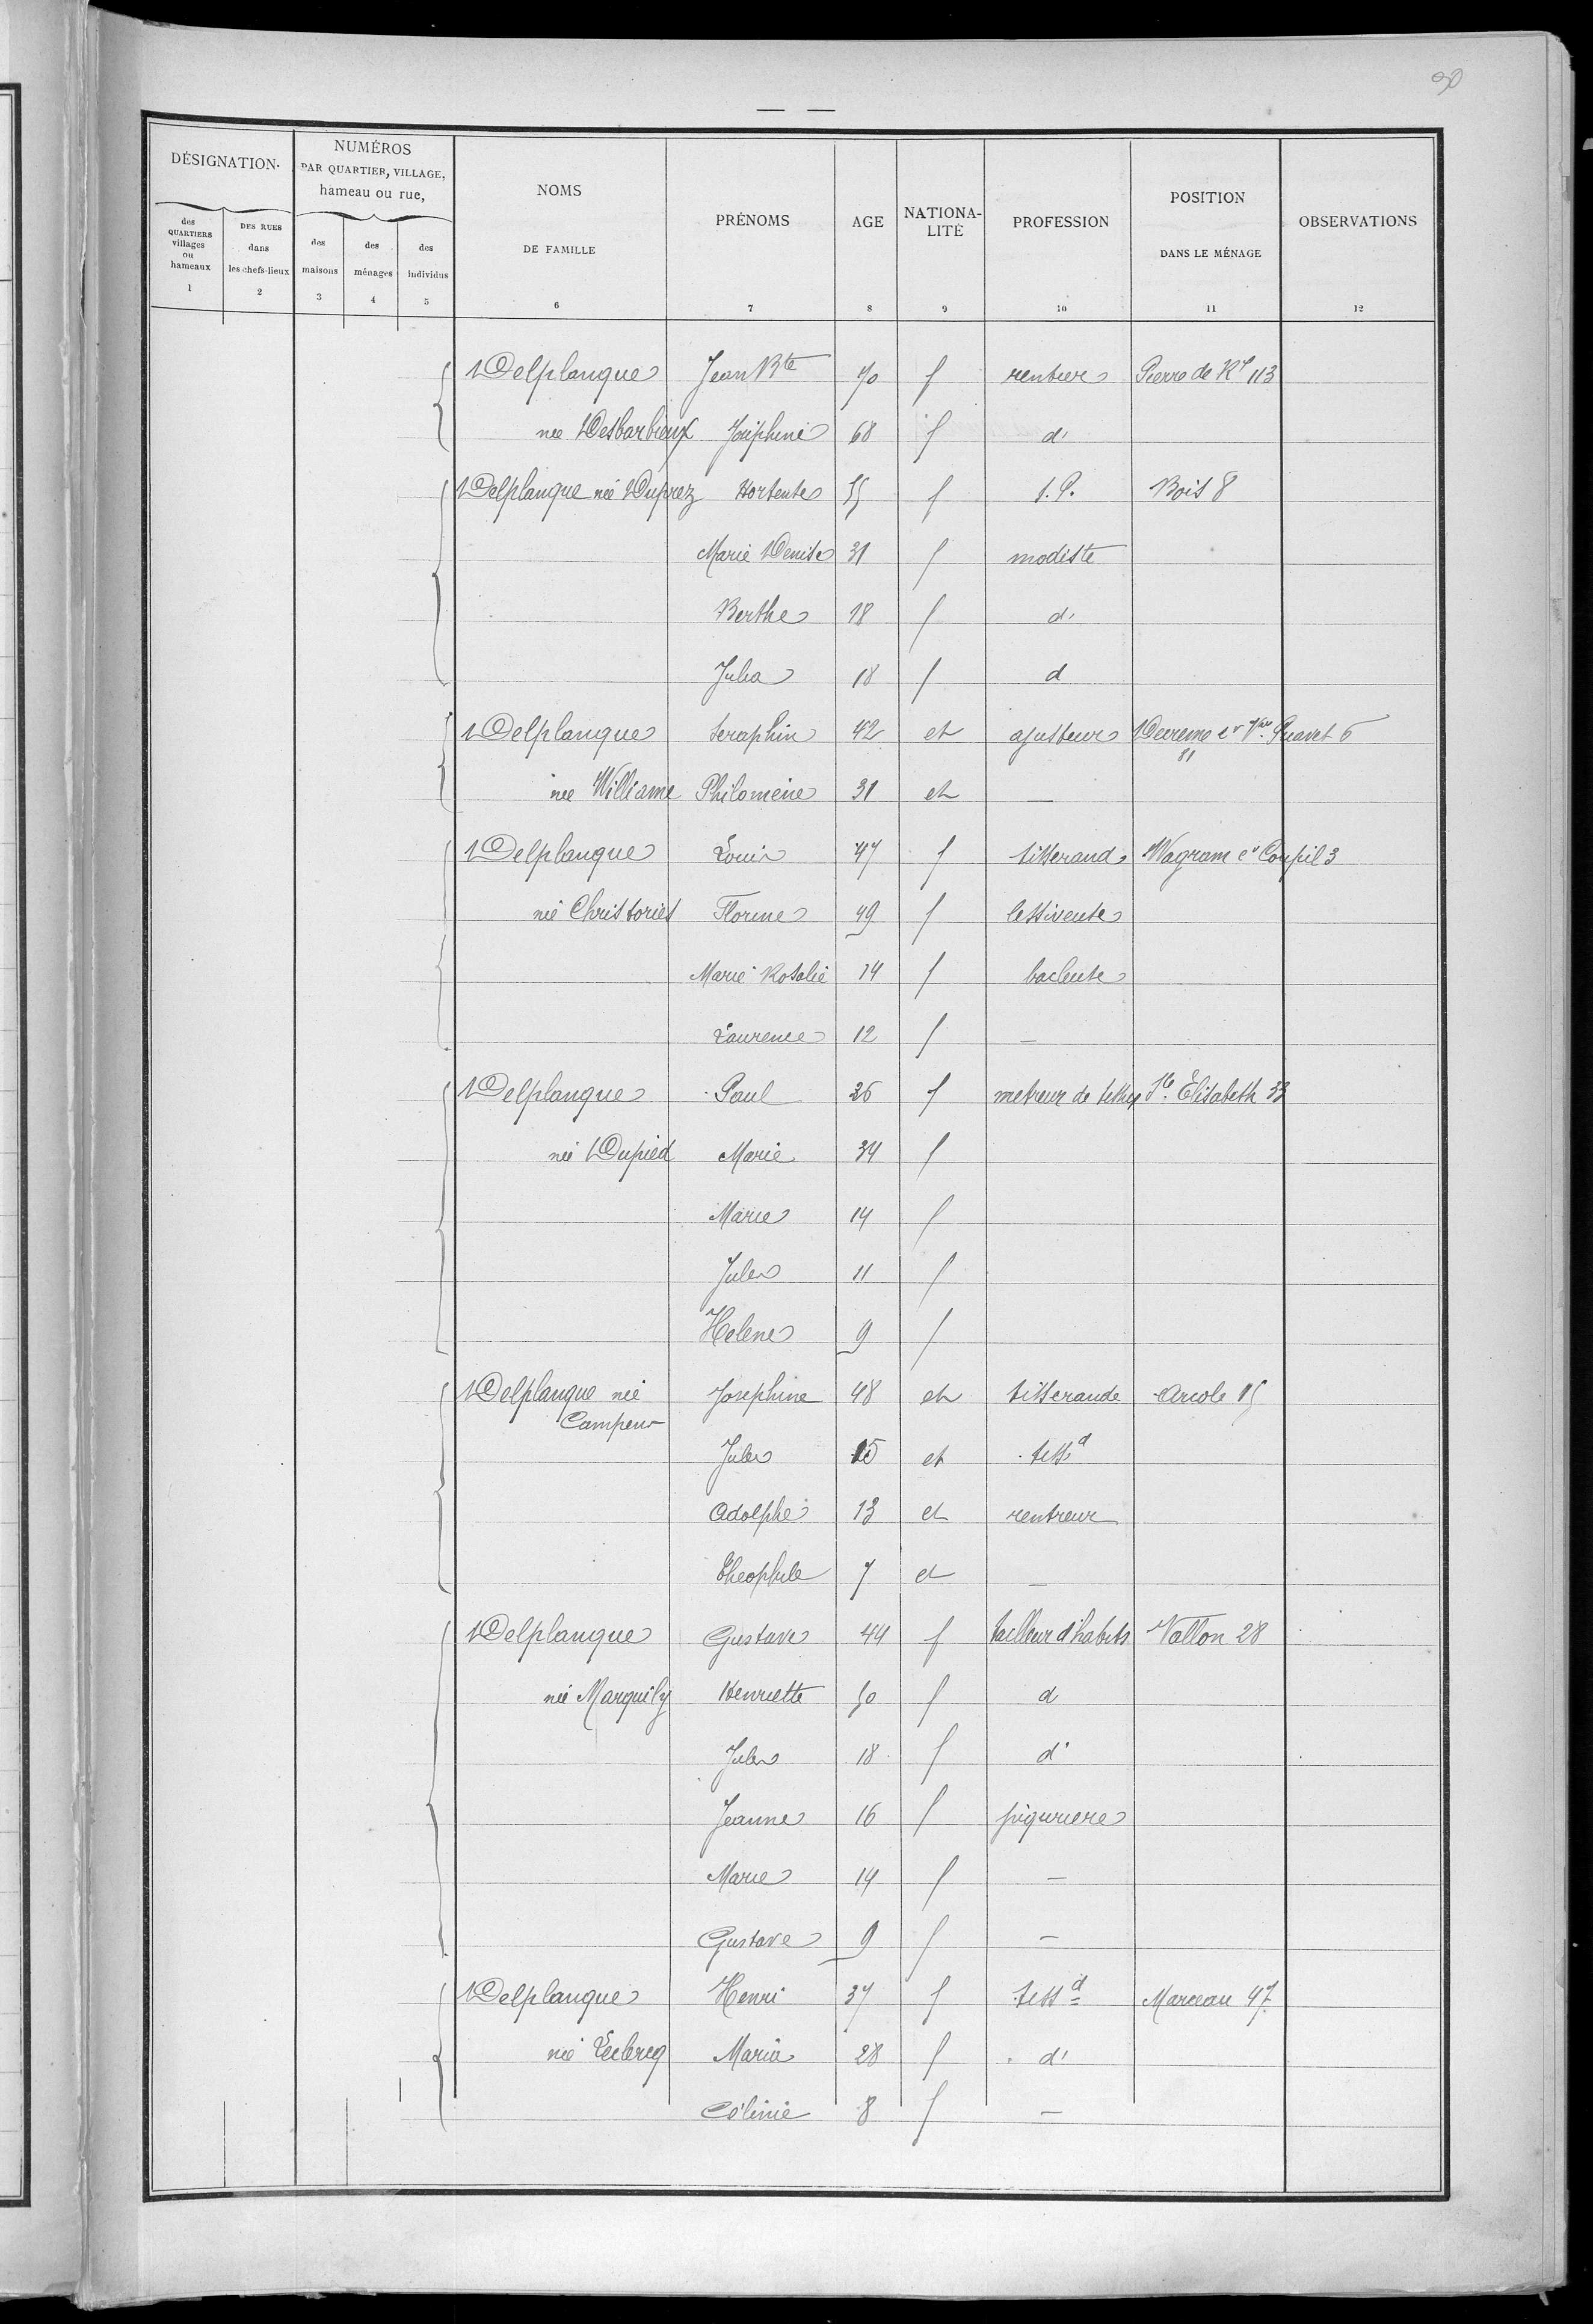 90
DÉSIGNATION
NUMÉROS PAR QUARTIER, VILLAGE, hameau ou rue,
NOMS DE FAMILLE
PRÉNOMS
AGE
NATIONALITÉ
PROFESSION
POSITION DANS LE MÉNAGE
OBSERVATIONS
des QUARTIERS villages ou hameaux
DES RUES dans les chefs-lieux
des maisons
des ménages
des individus
1 2 3 4 5 6 7 8 9 10 11 12
Delplanque Jean Bte 70 f rentier Pierre de Rx 113
née Desbarbieux Joséphine 68 f d°
Delplanque née Duprez Hortense 55 f s.P. Bois 8
Marie Denise 31 f modiste
Berthe 18 f d°
Julia 18 f d
Delplanque Seraphin 42 et ajusteur Decreme 6
81
née Williame Philomene 31 et —
Delplanque Louis 47 f tisserand Wagram cr Coupil 3
née Christories Florine 49 f lessiveuse
Marie Rosalie 14 f bacleuse
Laurence 12 f —
Delplanque Paul 36 f metreur de tissus Ste Élisabeth 33
née Dupied Marie 34 f
Marie 14 f
Jules 11 f
Helene 9 f
Delplanque née Joséphine 48 et tisserande Arcole 15
Campeur
Jules 15 et tissd
Adolphe 13 et rentreur
Théophile 7 et —
Delplanque Gustave 44 f tailleur d'habits Vallon 28
née Marquily Henriette 50 f d
Jules 18 f d°
Jeanne 16 f piquriere
Marie 14 f —
Gustave 9 f —
Delplanque Henri 37 f tissd Marceau 47
née Leclercq Maria 28 f d°
Célinie 8 f —